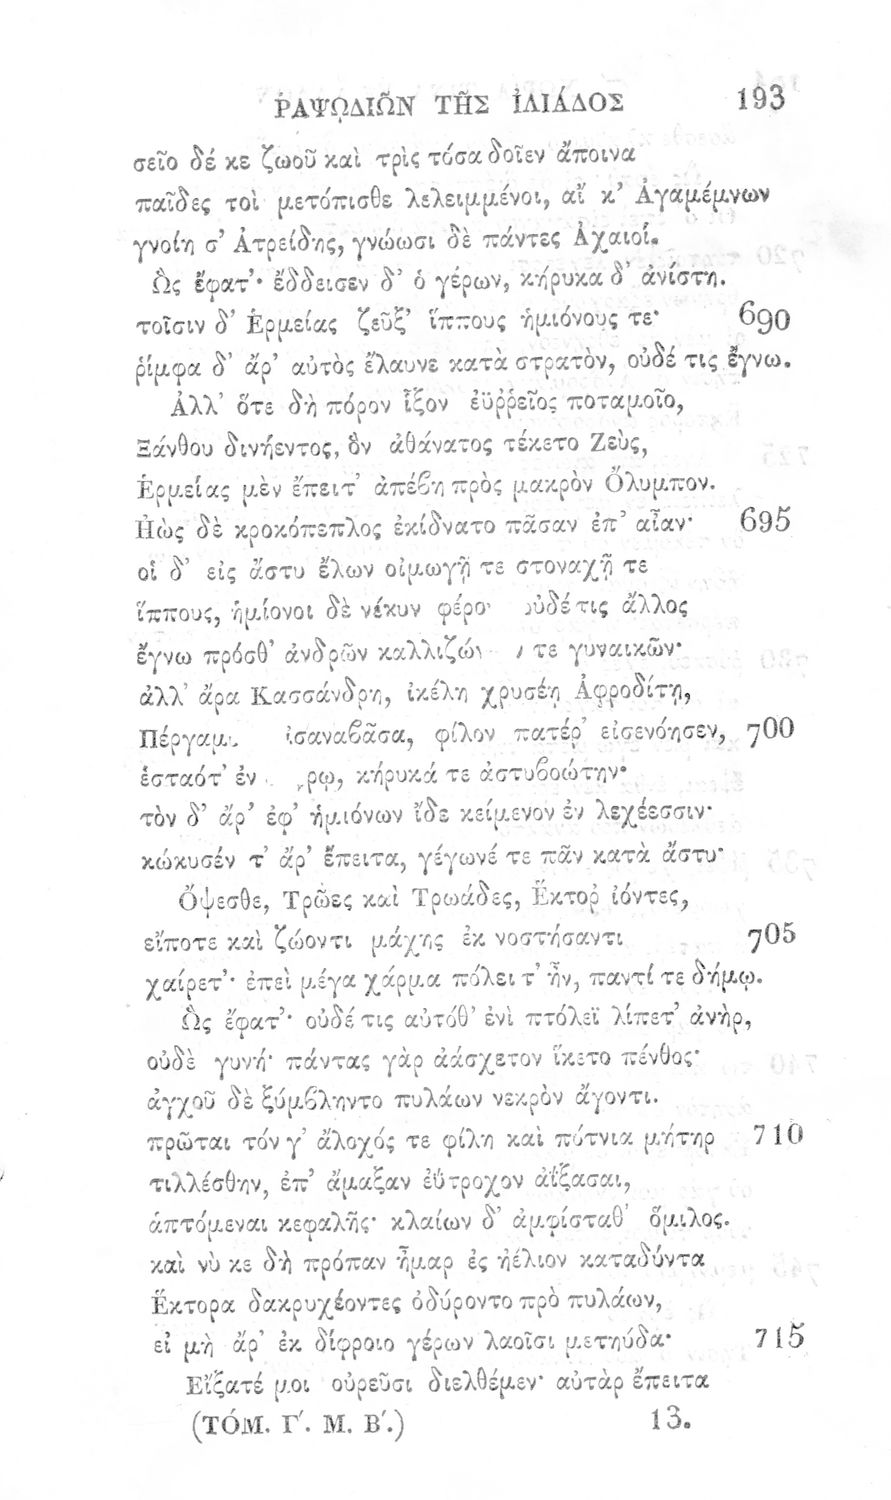 ῬΑΨΩΔΙΩ͂Ν ΤΗ͂Σ ἸΛΙΆΔΟΣ 193
σεῖο δέ κε ζωοῦ καὶ τρὶς τόσα δοῖεν ἄποινα
παῖδες τοὶ μετόπισθε λελειμμένοι, αἴ κ’ Ἀγαμέμνων
γνοίη σ’ Ἀτρείδης, γνώωσι δὲ πάντες Ἀχαιοί.
Ὣς ἔφατ’· ἔδδεισεν δ’ ὁ γέρων, κήρυκα δ’ ἀνίστη.
τοῖσιν δ’ Ἑρμείας ζεῦξ’ ἵππους ἡμιόνους τε· 690
ῥίμφα δ’ ἄρ’ αὐτὸς ἔλαυνε κατὰ στρατὸν, οὐδέ τις ἔγνω.
Ἀλλ’ ὅτε δὴ πόρον ἷξον ἐϋῤῥεῖος ποταμοῖο,
Ξάνθου δινήεντος, ὃν ἀθάνατος τέκετο Ζεὺς,
Ἑρμείας μὲν ἔπειτ’ ἀπέβη πρὸς μακρὸν Ὄλυμπον.
Ἠὼς δὲ κροκόπεπλος ἐκίδνατο πᾶσαν ἐπ’ αἶαν· 695
οἱ δ’ εἰς ἄστυ ἔλων οἰμωγῇ τε στοναχῇ τε
ἵππους, ἡμίονοι δὲ νέκυν οὐδέ τις ἄλλος
ἔγνω πρόσθ’ ἀνδρῶν τε γυναικῶν·
ἀλλ’ ἄρα Κασσάνδρη, ἰκέλη χρυσέῃ Ἀφροδίτῃ,
φίλον πατέρ’ εἰσενόησεν, 700
ἑσταότ’ ἐν κήρυκά τε ἀστυβοώτην·
τὸν δ’ ἄρ’ ἐφ’ ἡμιόνων ἴδε κείμενον ἐν λεχέεσσιν·
κώκυσέν τ’ ἄρ’ ἔπειτα, γέγωνέ τε πᾶν κατὰ ἄστυ·
Ὄψεσθε, Τρῶες καὶ Τρωάδες, Ἕκτορ’ ἰόντες,
εἴποτε καὶ ζώοντι μάχης ἐκ νοστήσαντι 705
χαίρετ’· ἐπεὶ μέγα χάρμα πόλει τ’ ἦν, παντί τε δήμῳ.
Ὣς ἔφατ’· οὐδέ τις αὐτόθ’ ἐνὶ πτόλεϊ λίπετ’ ἀνὴρ,
οὐδὲ γυνή· πάντας γὰρ ἀάσχετον ἵκετο πένθος·
ἀγχοῦ δὲ ξύμβληντο πυλάων νεκρὸν ἄγοντι.
πρῶται τόν γ’ ἄλοχός τε φίλη καὶ πότνια μήτηρ 710
τιλλέσθην, ἐπ’ ἄμαξαν ἐΰτροχον ἀΐξασαι,
ἁπτόμεναι κεφαλῆς· κλαίων δ’ ἀμφίσταθ’ ὅμιλος.
καὶ νὺ κε δὴ πρόπαν ἦμαρ ἐς ἠέλιον καταδύντα
Ἕκτορα δακρυχέοντες ὀδύροντο πρὸ πυλάων,
εἰ μὴ ἄρ’ ἐκ δίφροιο γέρων λαοῖσι μετηύδα· 715
Εἴξατέ μοι οὐρεῦσι διελθέμεν· αὐτὰρ ἔπειτα
(ΤΌΜ. Γ΄. Μ. Β΄.) 13.